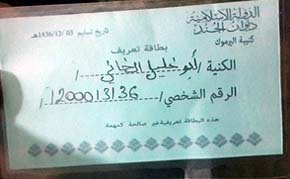 الدولة الإسلامية
ديوان الجند
كتيبة اليرموك
تاريخ تسليم 1436/12/03هـ
بطاقة تعريف
الكنية / أبو خليل
الرقم الشخصي / 1200013136
هذه البطاقة تعريفية غير صالحة كمهمة